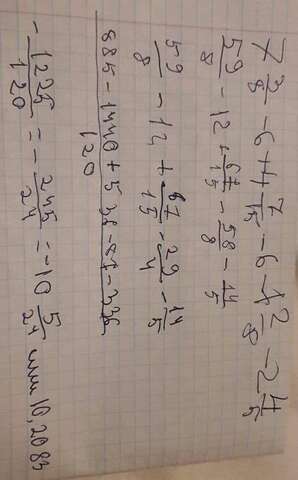 7 3/8 - 6 + 4 7/15 - 6 - 7 2/8 - 2 4/5
59/8 - 12 + 67/15 - 58/8 - 14/5
59/8 - 12 + 67/15 - 29/4 - 14/5
885 - 1440 + 536 - 87 - 336 / 120
- 1225/120 = - 245/24 = -10 5/24 или 10,2083